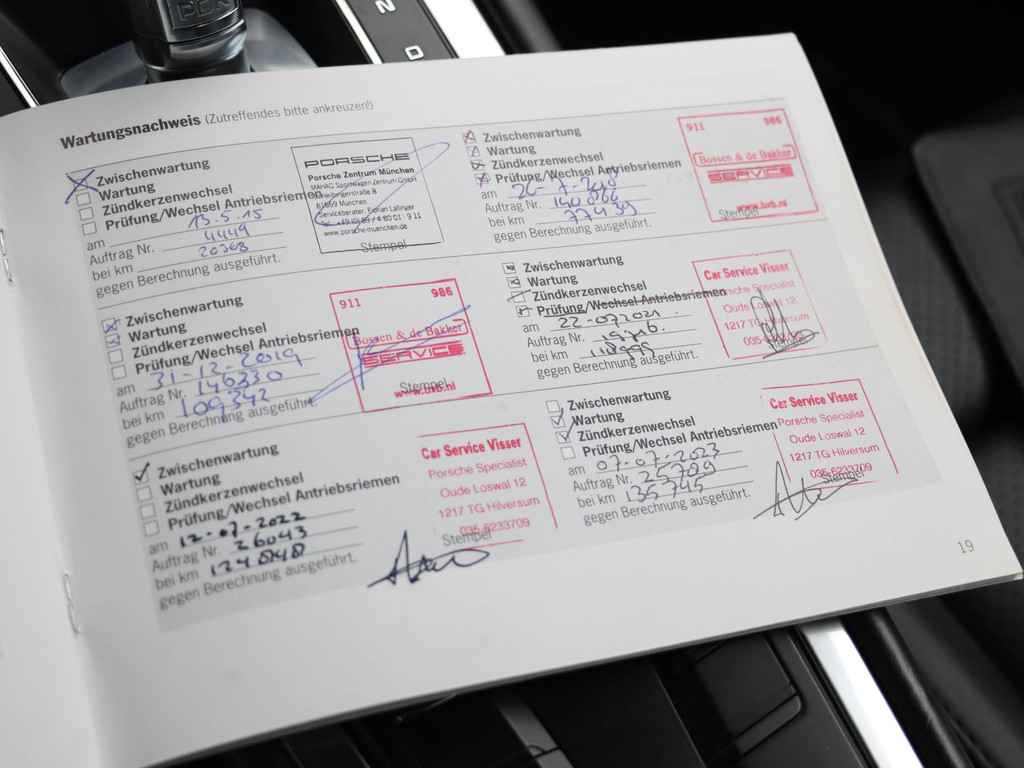 PDK
N
D
Wartungsnachweis (Zutreffendes bitte ankreuzen!)
Zwischenwartung
Wartung
Zündkerzenwechsel
Prüfung/Wechsel Antriebsriemen
am 13.5.15
Auftrag Nr. 4449
bei km 20368
gegen Berechnung ausgeführt.
PORSCHE
Porsche Zentrum München
MAHAG Sportwagen Zentrum GmbH
81669 München
Serviceberater: Florian
www.porsche-muenchen.de
Stempel
Zwischenwartung
Wartung
Zündkerzenwechsel
Prüfung/Wechsel Antriebsriemen
am
Auftrag Nr.
bei km 77439
gegen Berechnung ausgeführt.
911 986
Bossen & de Bakker
SERVICE
www.bxb.nl
Stempel
Zwischenwartung
Wartung
Zündkerzenwechsel
Prüfung/Wechsel Antriebsriemen
am 31-12-2019
Auftrag Nr. 146330
bei km 109342
gegen Berechnung ausgeführt.
911 986
Bossen & de Bakker
SERVICE
Stempel
www.bxb.nl
Zwischenwartung
Wartung
Zündkerzenwechsel
Prüfung/Wechsel Antriebsriemen
am 22-07-2021
Auftrag Nr.
bei km 118995
gegen Berechnung ausgeführt.
Car Service Visser
Porsche Specialist
Oude Loswal 12
1217 TG
035-
Zwischenwartung
Wartung
Zündkerzenwechsel
Prüfung/Wechsel Antriebsriemen
am 12-07-2022
Auftrag Nr. 26043
bei km 124848
gegen Berechnung ausgeführt.
Car Service Visser
Porsche Specialist
Oude Loswal 12
1217 TG Hilversum
035-6233709
Stempel
Zwischenwartung
Wartung
Zündkerzenwechsel
Prüfung/Wechsel Antriebsriemen
am 07-07-2023
Auftrag Nr. 25709
bei km 135745
gegen Berechnung ausgeführt.
Car Service Visser
Porsche Specialist
Oude Loswal 12
1217 TG Hilversum
035-6233709
Stempel
19